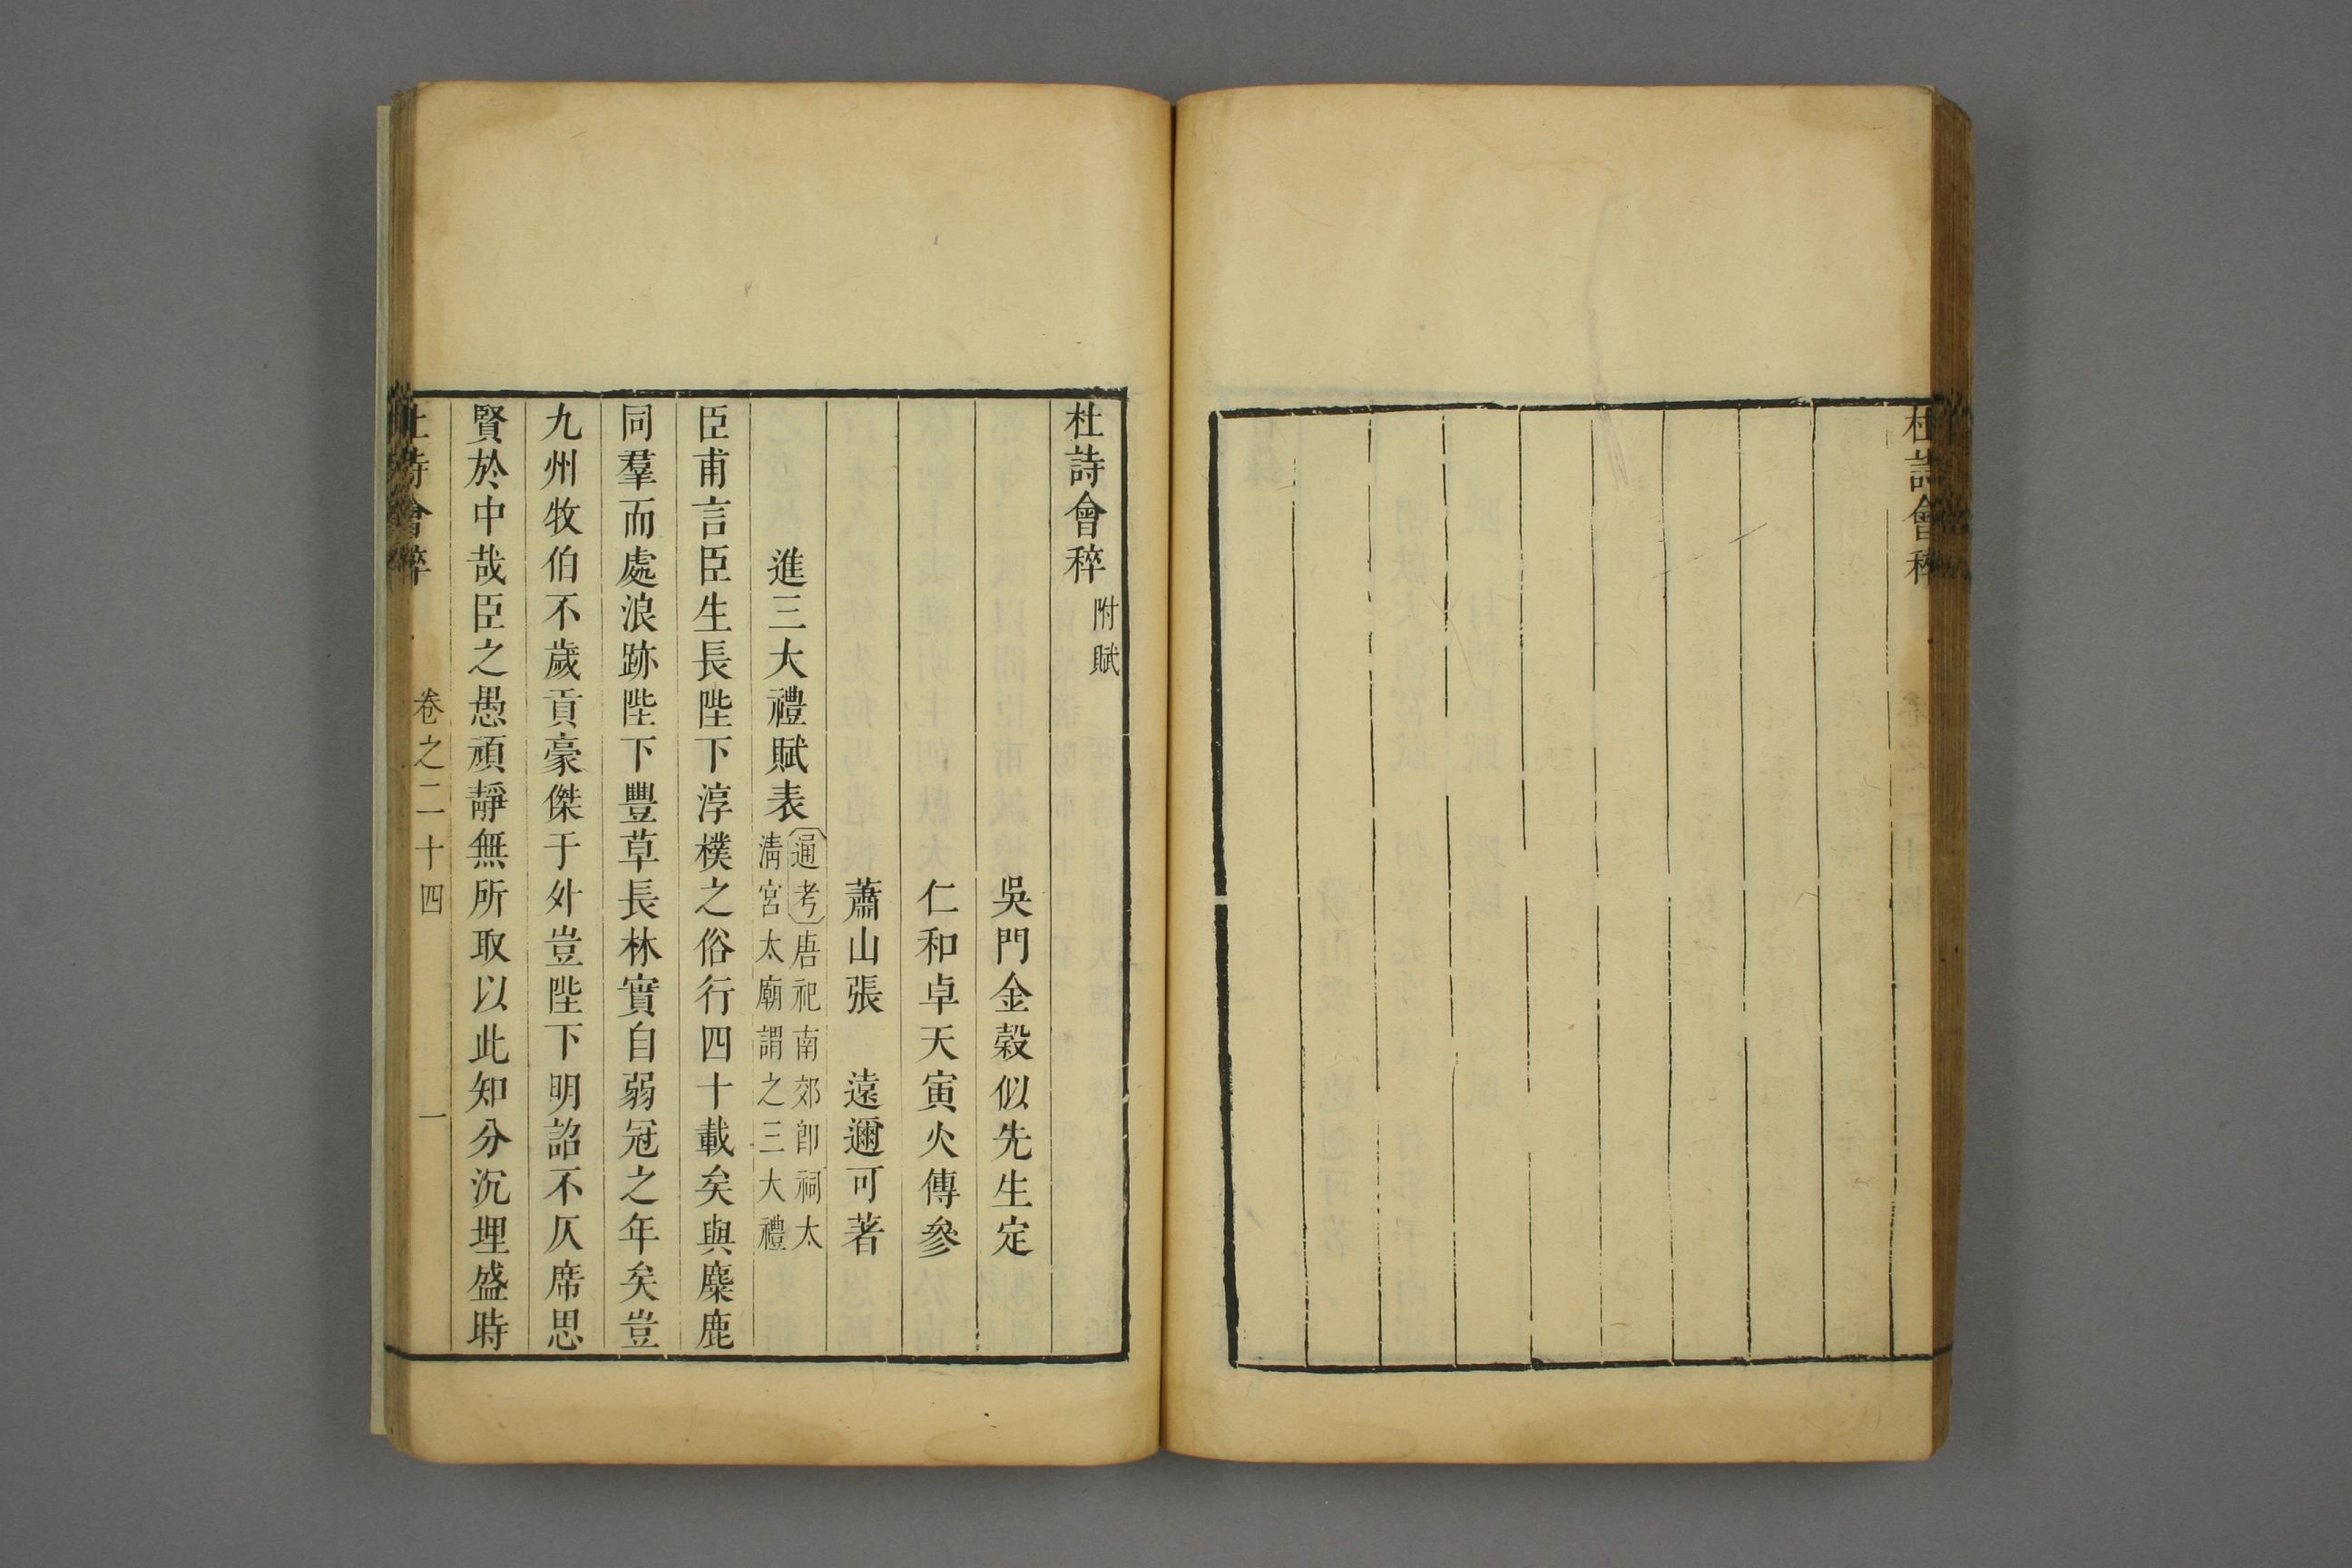 杜詩會稡
杜詩會稡 附賦
吳門金榖似先生定
仁和卓天寅火傳參
蕭山張　遠邇可著
進三大禮賦表 通考 唐祀南郊卽祠太
淸宮太廟謂之三大禮
臣甫言臣生長陛下淳樸之俗行四十載矣與麋鹿
同羣而處浪跡陛下豐草長林實自弱冠之年矣豈
九州牧伯不歲貢豪傑于外豈陛下明詔不仄席思
賢於中哉臣之愚頑靜無所取以此知分沉埋盛時
杜詩會稡 卷之二十四 一